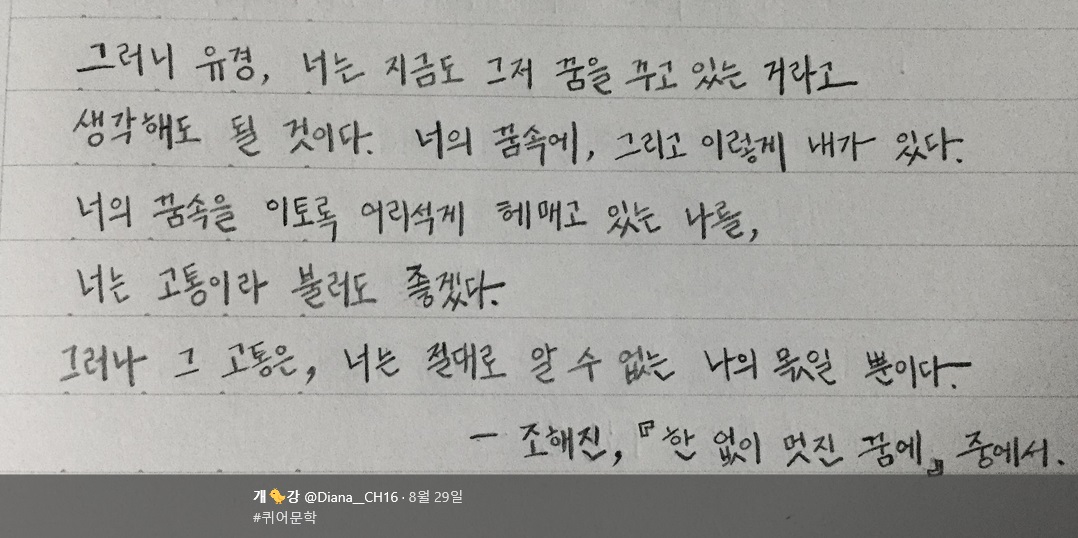 그러니 유경, 너는 지금도 그저 꿈을 꾸고 있는 거라고
생각해도 될 것이다. 너의 꿈속에, 그리고 이렇게 내가 있다.
너의 꿈속을 이토록 어리석게 헤매고 있는 나를,
너는 고통이라 불러도 좋겠다.
그러나 그 고통은, 너는 절대로 알 수 없는 나의 몫일 뿐이다.
- 조해진, 『한 없이 멋진 꿈에』 중에서.
개🐤강 @Diana__CH16 · 8월 29일
#퀴어문학